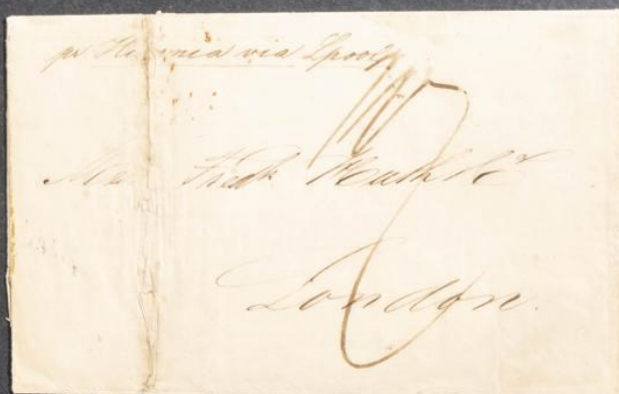 pr Hibernia via Lpool
Fredk Huth & Co
London.